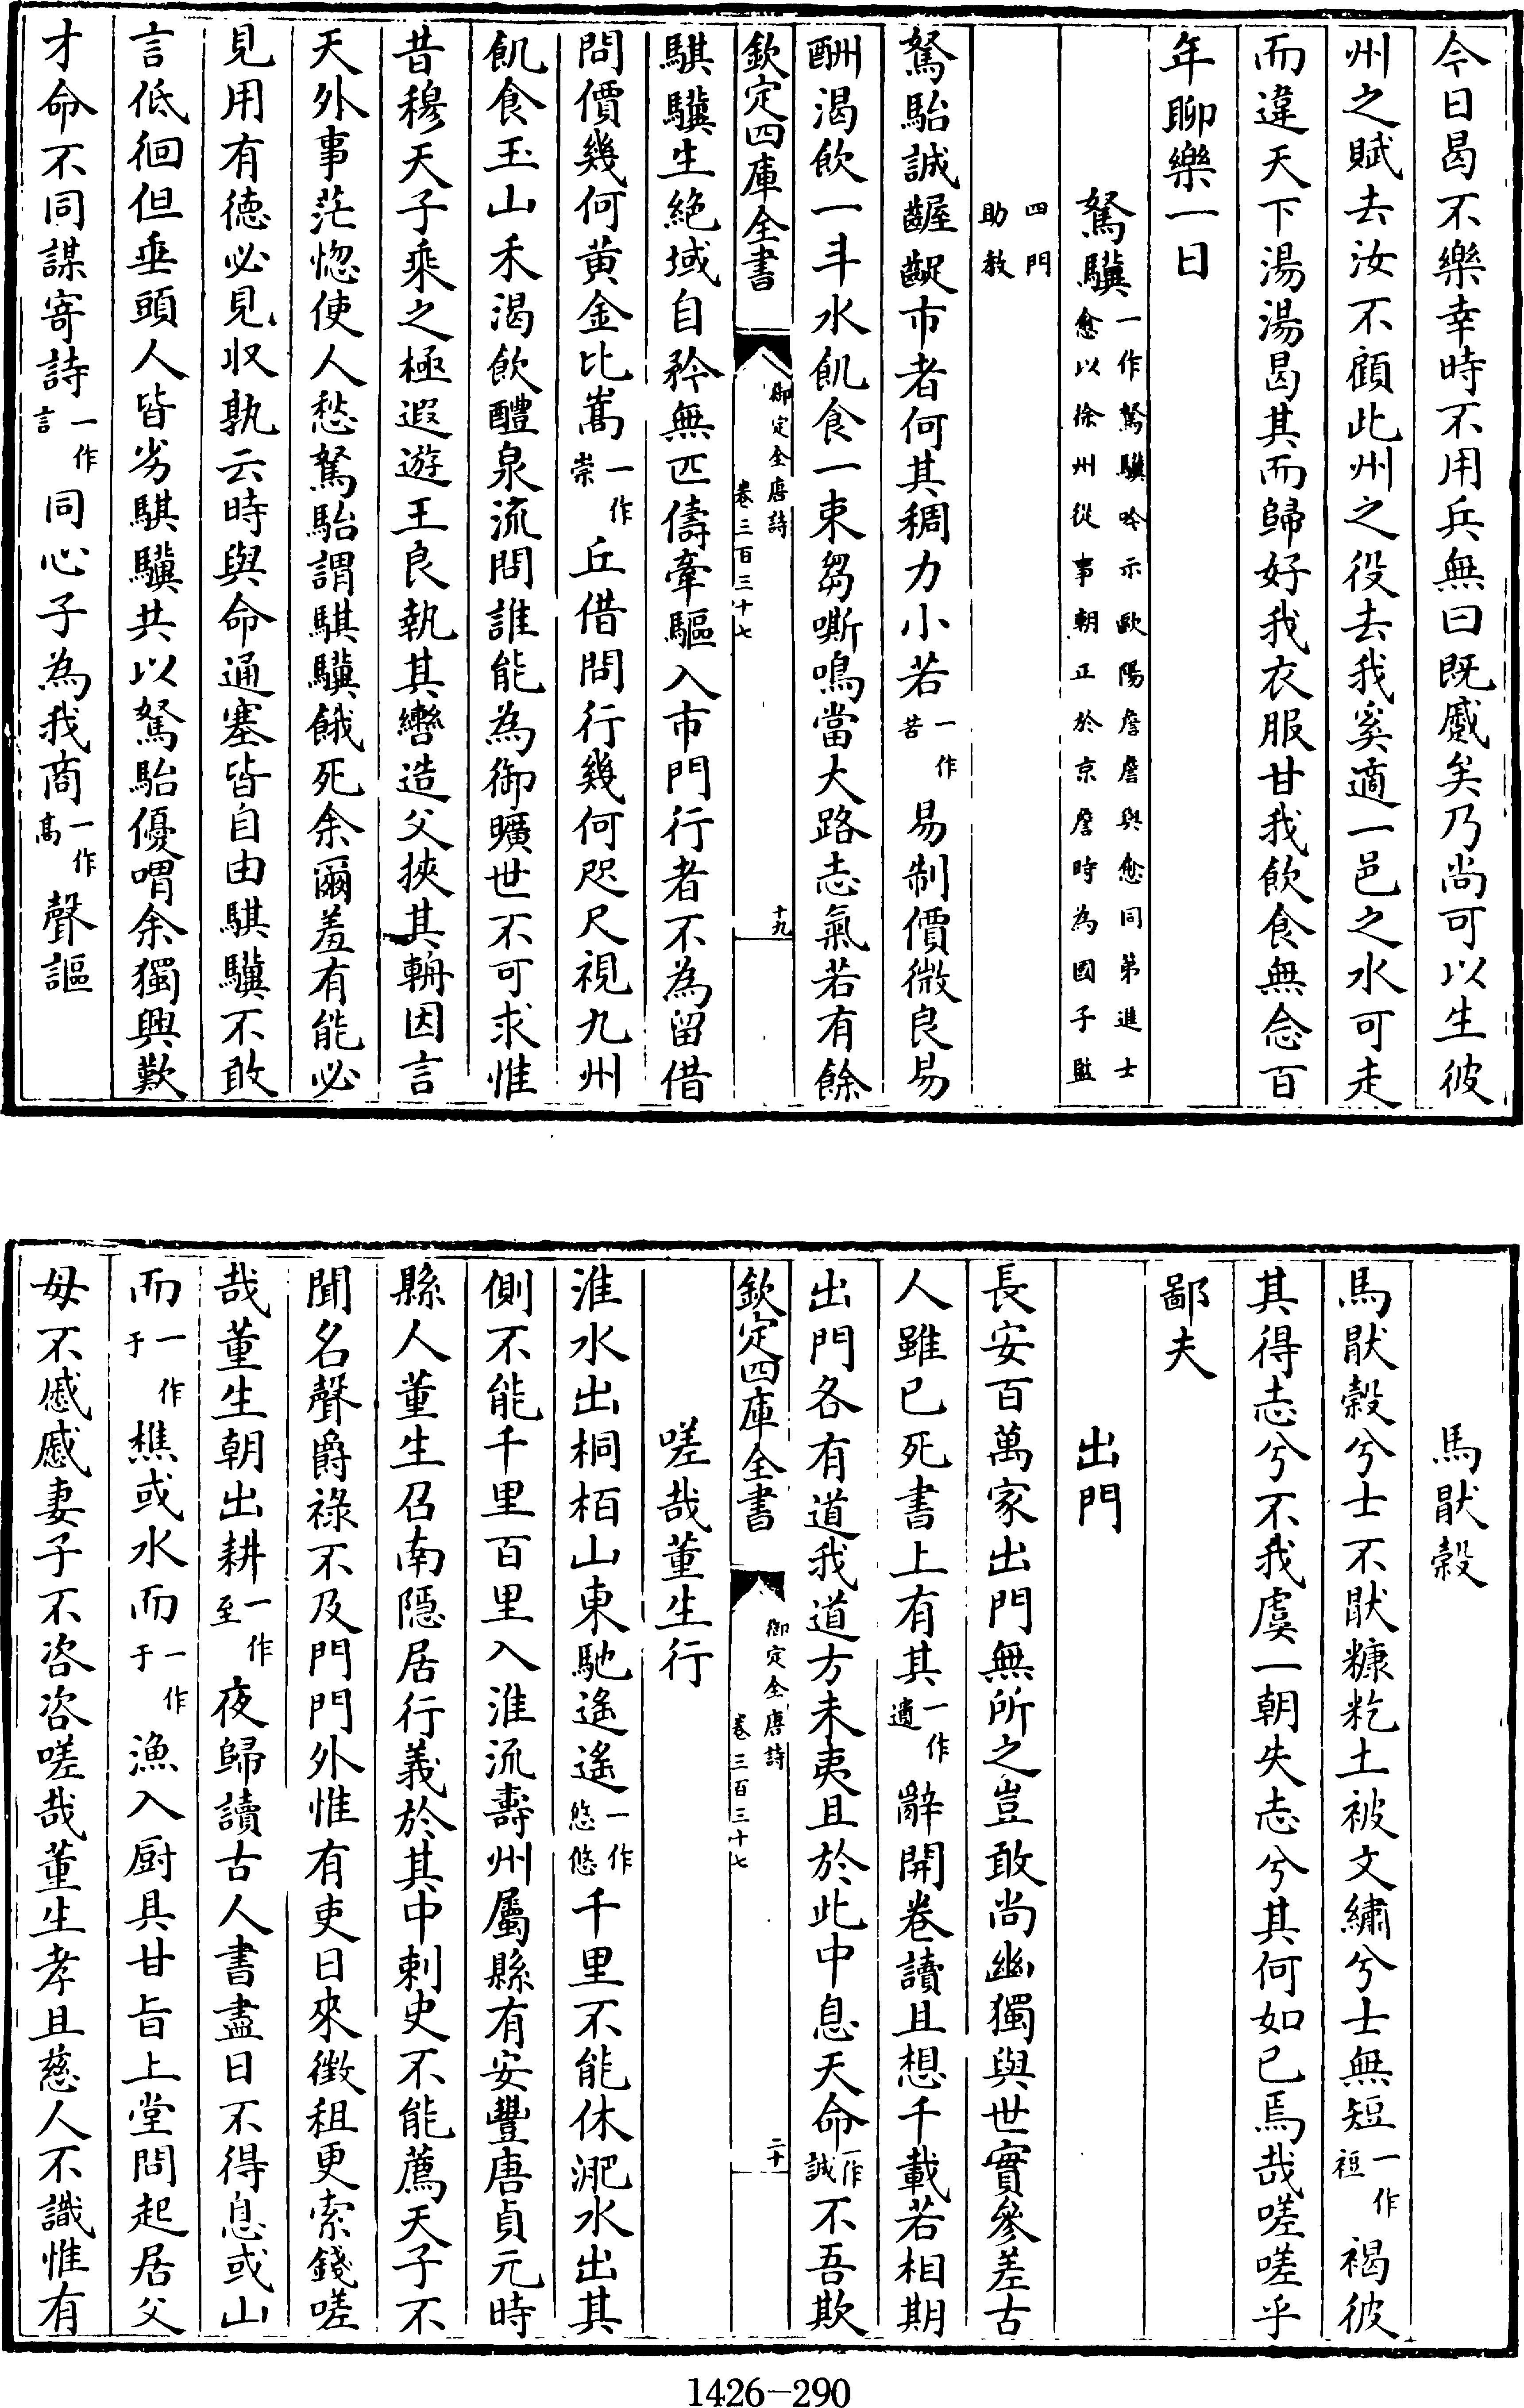 今日曷不樂幸時不用兵無曰既蹙矣乃尚可以生彼
州之賦去汝不顧此州之役去我奚適一邑之水可走
而違天下湯湯曷其而歸好我衣服甘我飲食無念百
年聊樂一日
駑驥一作駑驥吟示歐陽詹詹與愈同第進士
愈以徐州從事朝正於京詹時為國子監
四門
助教
駑駘誠齷齪市者何其稠力小若一作苦易制價微良易
酬渴飲一斗水飢食一束芻嘶鳴當大路志氣若有餘
欽定四庫全書 御定全唐詩 卷三百三十七 十九
騏驥生絶域自矜無匹儔牽驅入市門行者不為留借
問價幾何黄金比嵩一作崇丘借問行幾何咫尺視九州
飢食玉山禾渴飲醴泉流問誰能為御曠世不可求惟
昔穆天子乘之極遐遊王良執其轡造父挾其輈因言
天外事茫惚使人愁駑駘謂騏驥餓死余爾羞有能必
見用有德必見收孰云時與命通塞皆自由騏驥不敢
言低徊但垂頭人皆劣騏驥共以駑駘優喟余獨興歎
才命不同謀寄詩一作言同心子為我商一作高聲謳
馬猒穀
馬猒穀兮士不猒糠籺土被文繡兮士無短一作裋褐彼
其得志兮不我虞一朝失志兮其何如已焉哉嗟嗟乎
鄙夫
出門
長安百萬家出門無所之豈敢尚幽獨與世實參差古
人雖已死書上有其一作遺辭開卷讀且想千載若相期
出門各有道我道方未夷且於此中息天命一作誠不吾欺
欽定四庫全書 御定全唐詩 卷三百三十七 二十
嗟哉董生行
淮水出桐栢山東馳遙遙一作悠悠千里不能休淝水出其
側不能千里百里入淮流壽州屬縣有安豐唐貞元時
縣人董生召南隱居行義於其中刺史不能薦天子不
聞名聲爵祿不及門門外惟有吏日來徵租更索錢嗟
哉董生朝出耕一作至夜歸讀古人書盡日不得息或山
而一作于樵或水而一作于漁入厨具甘旨上堂問起居父
母不慼慼妻子不咨咨嗟哉董生孝且慈人不識惟有
1426-290